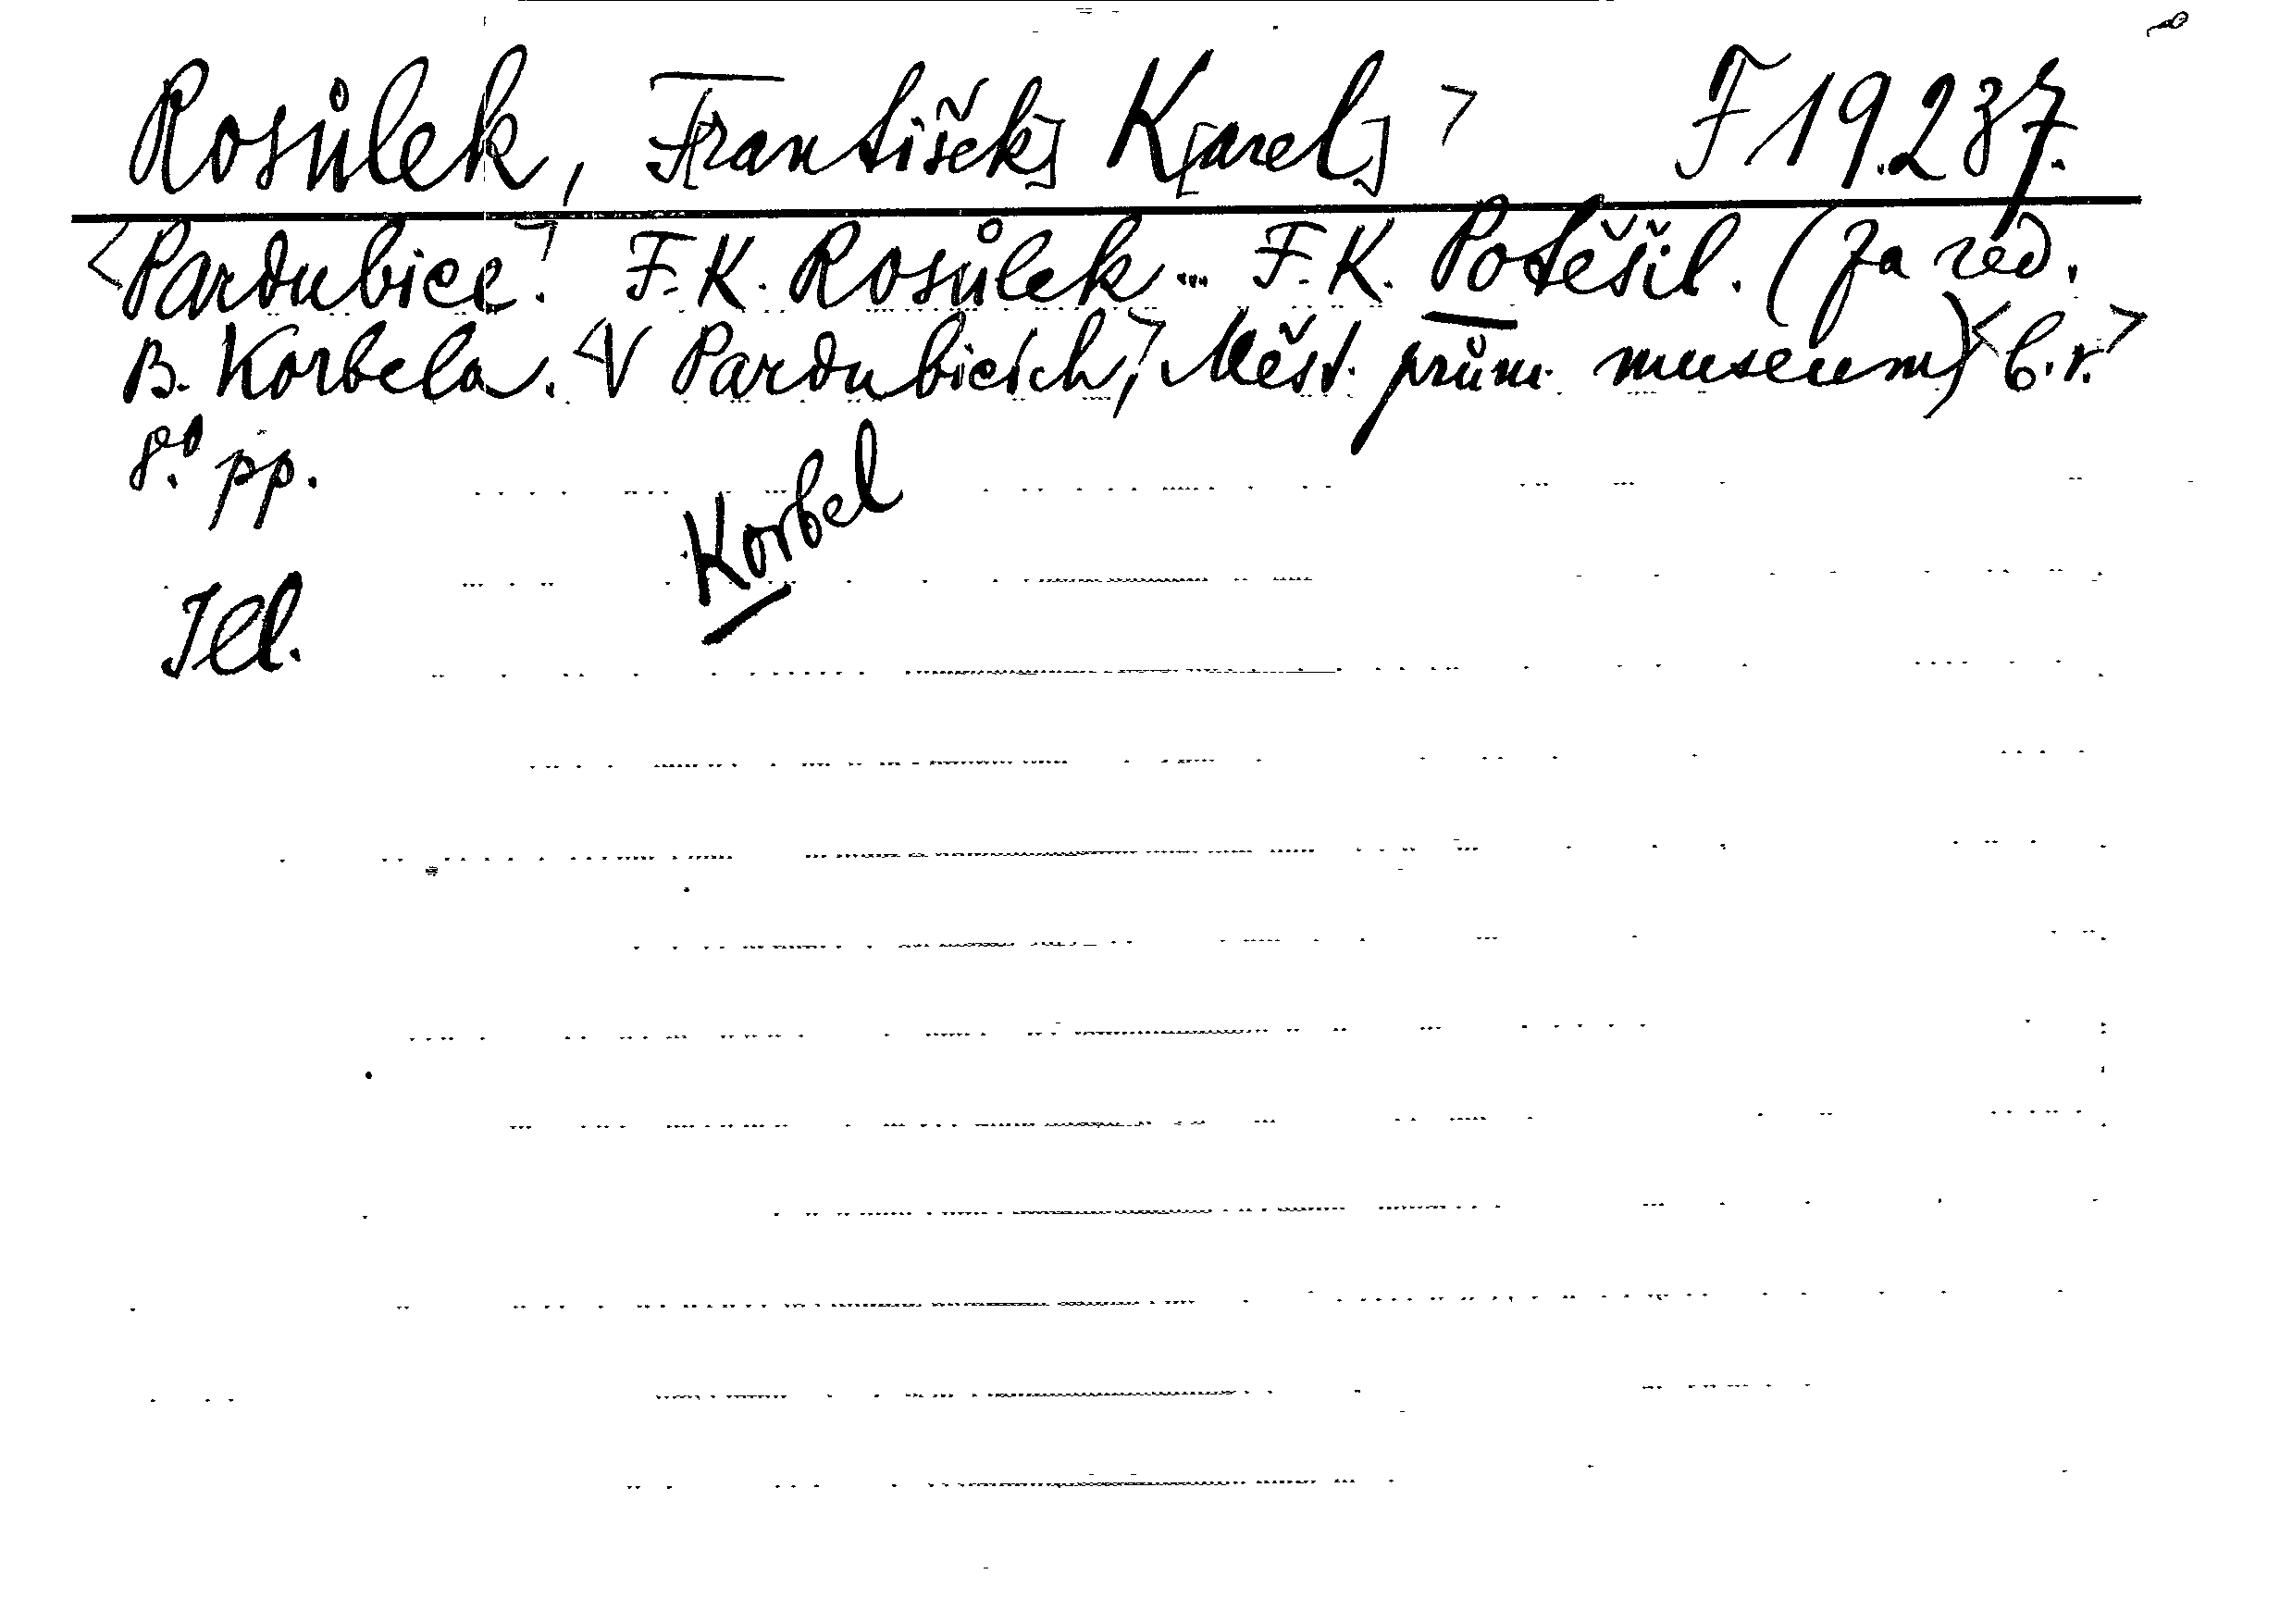 Rosůlek, F[rantišek] K[arel] > F 19.237.
<Pardubice.> F. K. Rosůlek ... F. K. Potěšil. (Za red.
B. Korbela. <V Pardubicích,> Měst. prům. museum) <b. r.>
8.° pp.
Korbel
Ill.